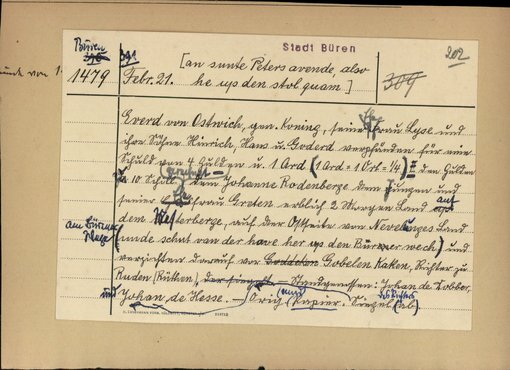 Büren 391 Stadt Büren 202
1479 Febr. 21. [an sunte Peters avende, also 309
he ups den stol quam]
Everd von Ostwich, gen. Koning, seine Ehefrau Lyse und
ihre Söhne Hinrich, Hans u. Goderd verpfänden für eine
Schuld von 4 Gulden u. 1 Ord (1 Ord = 1 Ort = 1/4) den Gulden
zu 10 Schill. dem Johanne Rodenberge dem Jungen und
seiner Frau Greten erblich 2 Morgen Land auf
dem Westerberge, auf der Ostseite von Nevelunges Land
am Bürener Wege (unde schut van der have her up den Bürener wech) und
verzichten darauf vor Goddelen Gobelen Kaken, Richter zu
Ruden (Rüthen), der siegelt. Standgenossen: Johan de Lobber
und Johan de Hesse. – Orig. Papier. Siegel des Richters (ab).